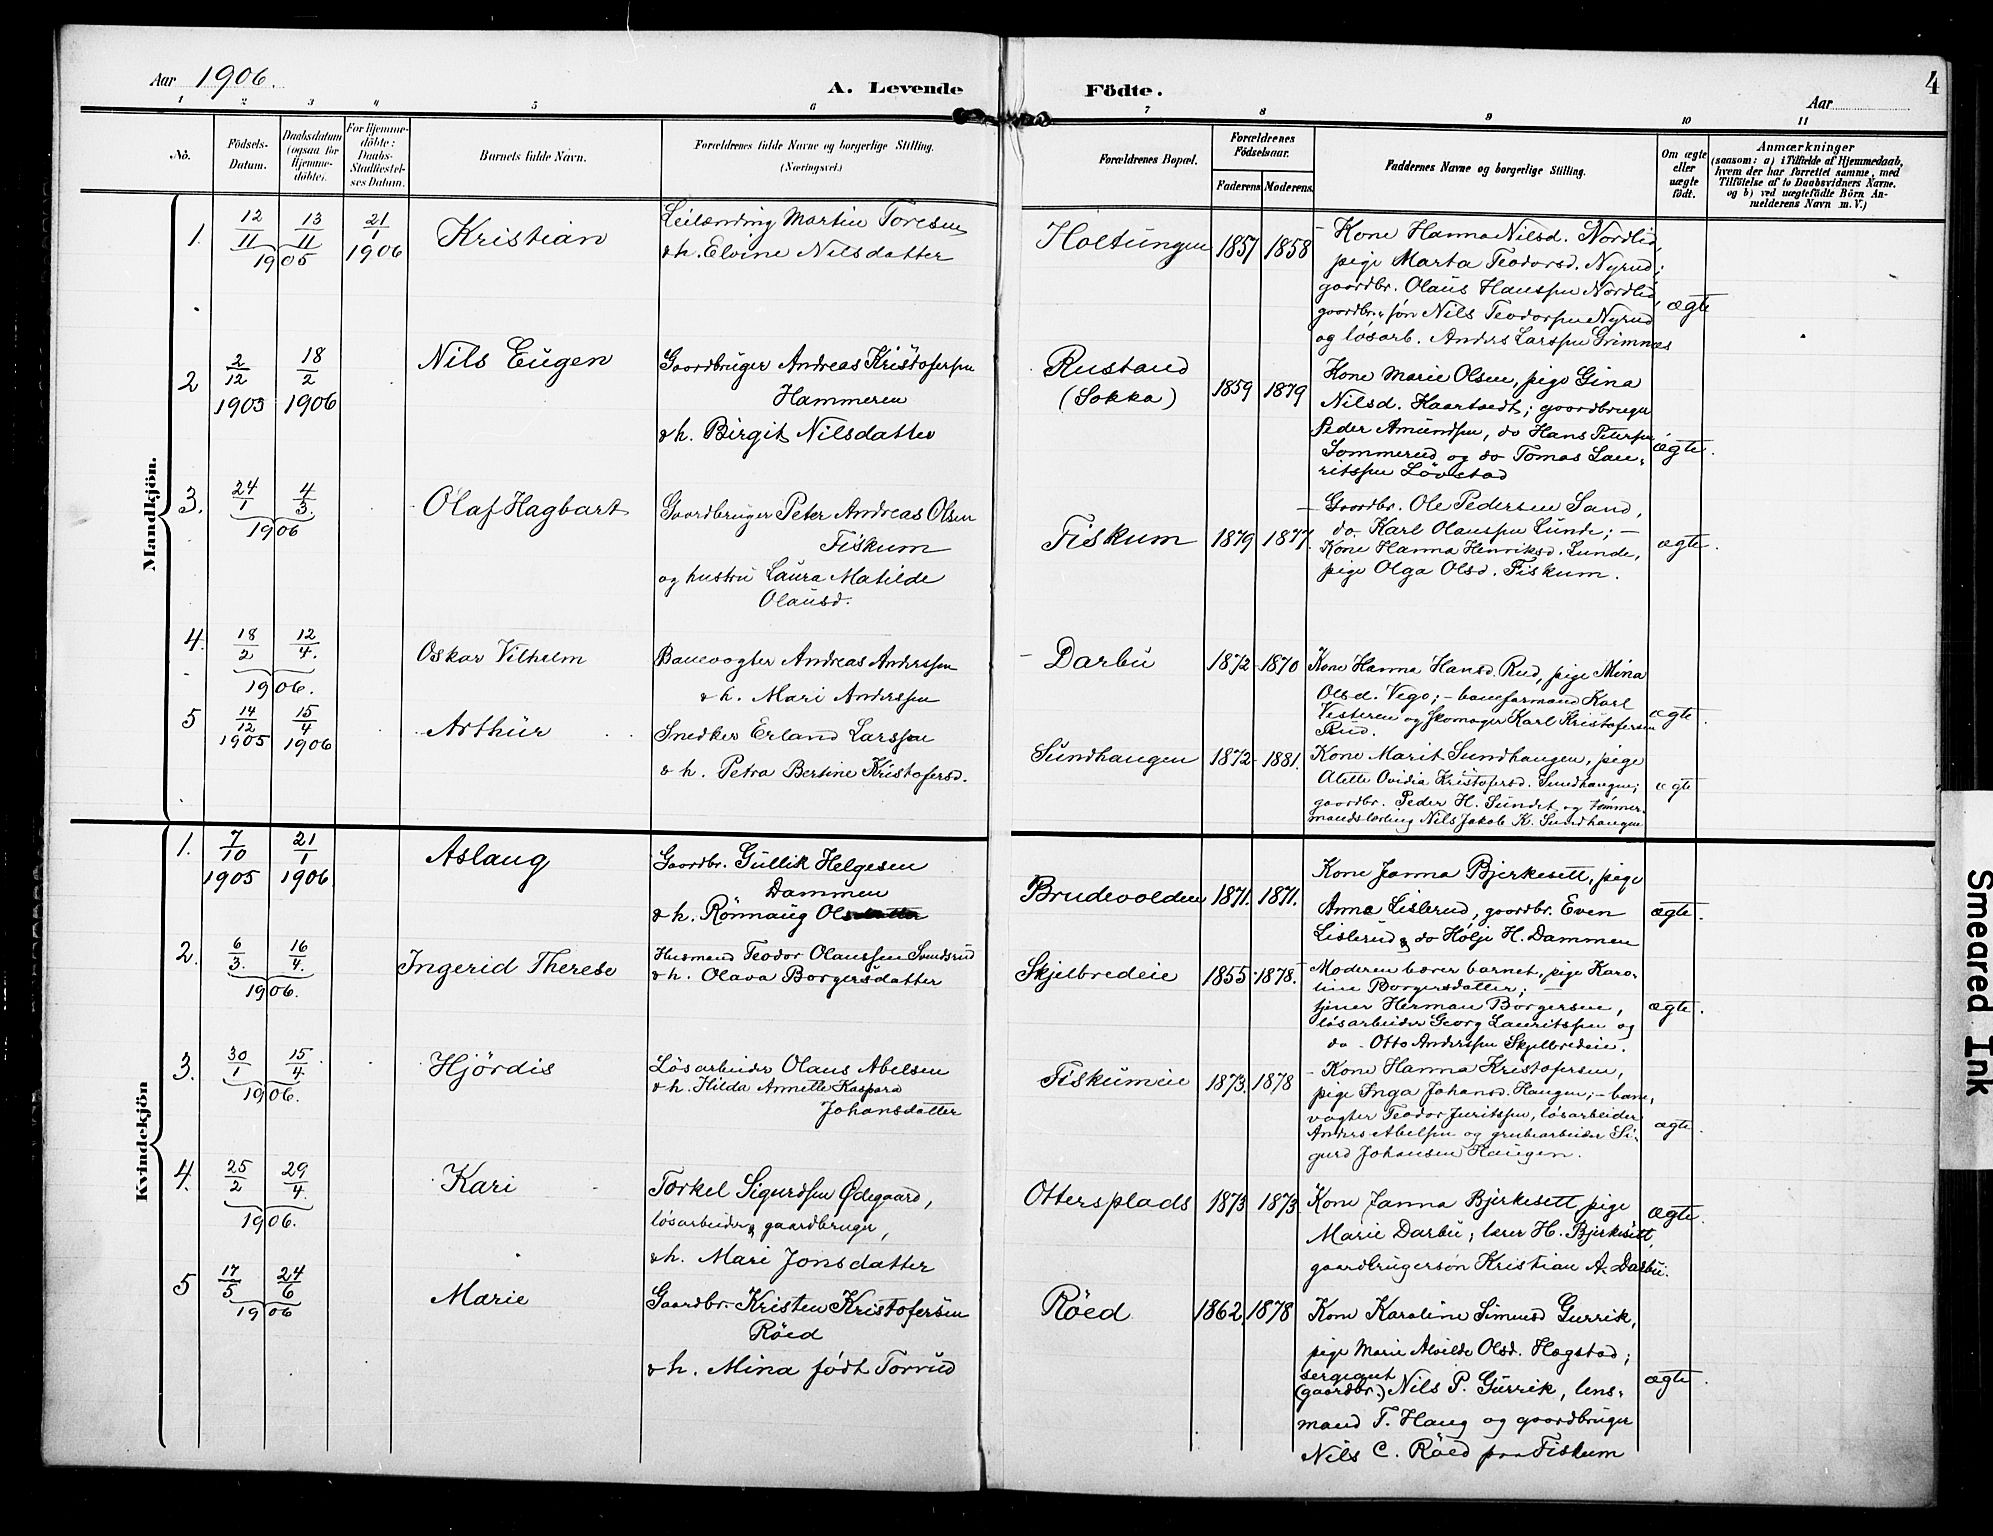 Aar 1906.
A. Levende Födte.
4
Aar
1 2 3 4 5 6 7 8 9 10 11
No.
Födsels-
Datum.
Daabsdatum
(ogsaa for
Hjemme-
döbte).
For Hjemme-
döbte:
Daabs-
Stadfæstel-
ses Datum.
Barnets fulde Navn.
Forældrenes fulde Navne og borgerlige Stilling.
(Næringsvei.)
Forældrenes Bopæl.
Forældrenes
Födselsaar.
Faderens. Moderens.
Faddernes Navne og borgerlige Stilling.
Om ægte
eller
uægte
födt.
Anmærkninger
(saasom: a) i Tilfælde af Hjemmedaab,
hvem der har forrettet samme, med
Tilföielse af to Daabsvidners Navne.
og b) ved uægtefödte Börn An-
melderens Navn m. V.)
Mandkjön.
1. 12/11 13/11 1905 21/1 1906 Kristian
Leilending Martin Toresen
& h. Elvine Nilsdatter
Holtungen 1857 1858
Kone Hanna Nilsd. Nordlid,
pige Marta Teodorsd. Nyrud;
gaardbr. Olaus Hanssen Nordlid,
gaardbr. søn Nils Teodorsen Nyrud
og løsarb. Anders Larssen Grimnæs
ægte
2 2/12 1905 18/2 1906 Nils Eugen
Gaardbruger Andreas Kristofersen
Hammeren
& h. Birgit Nilsdatter
Rustand
(Sokka)
1859 1879
Kone Marie Olsen, pige Gina
Nilsd. Haartvedt; gaardbruger
Peder Amundsen, do Hans Petersen
Sommerud og do Tomas Lau-
ritssen Løvstad
ægte.
3. 24/1 4/3. 1906 Olaf Hagbart
Gaardbruger Peter Andreas Olsen
Fiskum
og hustru Laura Matilde
Olausd.
Fiskum 1879 1877
- Gaardbr. Ole Pedersen Sand,
do. Karl Olaussen Lunde; -
Kone Hanna Henriksd. Lunde,
pige Olga Olsd. Fiskum.
ægte.
4. 18/2 12/4. 1906. Oskar Vilhelm
Banevogter Andreas Anderssen
& h. Mari Anderssen
Darbu 1872 1870
Kone Hanna Hansd. Rud, pige Mina
Olsd. Vego; - baneformand Karl
Vesteren og skomager Karl Kristofersen
Rud.
ægte
5 14/12 1905 15/4 1906 Arthur
Snedker Erland Larssen
& h. Petra Bertine Kristofersd.
Sundhaugen 1872 1881.
Kone Marit Sundhaugen, pige
Alette Ovidia Kristofersd. Sundhaugen;
gaardbr. Peder H. Sundet og tømmer-
mandslærling Nils Jakob K. Sundhaugen
ægte
Kvindekjön
1. 7/10 1905 21/1 1906 Aslaug
Gaardbr. Gullik Helgesen
Dammen
& h. Rönnaug Ols
Brudevolden 1871. 1871.
Kone Janna Bjerkesett, pige
Anna Lislerud, gaardbr. Even
Lislerud & do Hølje H. Dammen
ægte.
2. 6/3. 16/4. 1906. Ingerid Therese
Husmand Teodor Olaussen Sundsrud
& h. Olava Borgersdatter
Skjelbredeie 1855 1878.
- Moderen bærer barnet, pige Karo-
line Borgersdatter; -
tjener Herman Borgersen,
løsarbeider Georg Lauritssen og
do - Otto Anderssen Skjelbredeie.
ægte.
3. 30/1 15/4. 1906. Hjördis
Løsarbeider Olaus Abelsen
& h. Hilda Annette Kaspara
Johansdatter
Fiskumeie 1873. 1878
- Kone Hanna Kristofersen,
pige Inga Johansd. Haugen; - bane-
vogter Teodor Juritssen, løsarbeider
Anders Abelsen og grubearbeider Si-
gurd Johansen Haugen.
ægte.
4. 25/2 29/4. 1906. Kari
Torkel Sigurdsen Ødegaard,
løsarbeider & gaardbruger,
& h. Mari Jonsdatter
Ottersplads 1873 1873
Kone Janna Bjerkesett, pige
Marie Darbu; lærer H. Bjerkesett,
gaardbrugersøn Kristian A. Darbu.
ægte.
5 17/5 24/6 1906 Marie
Gaardbr. Kristen Kristofersen
Röed
& h. Mina født Torrud
Röed 1862 1878
Kone Karoline Simensd Gurrik,
pige Marie Alvilde Olsd. Hægstad;
sergeant
(gaardbr.) Nils P. Gurrik, lens-
mand T. Haug og gaardbruger
Nils C. Röed paa Fiskum
ægte.
Smeared Ink